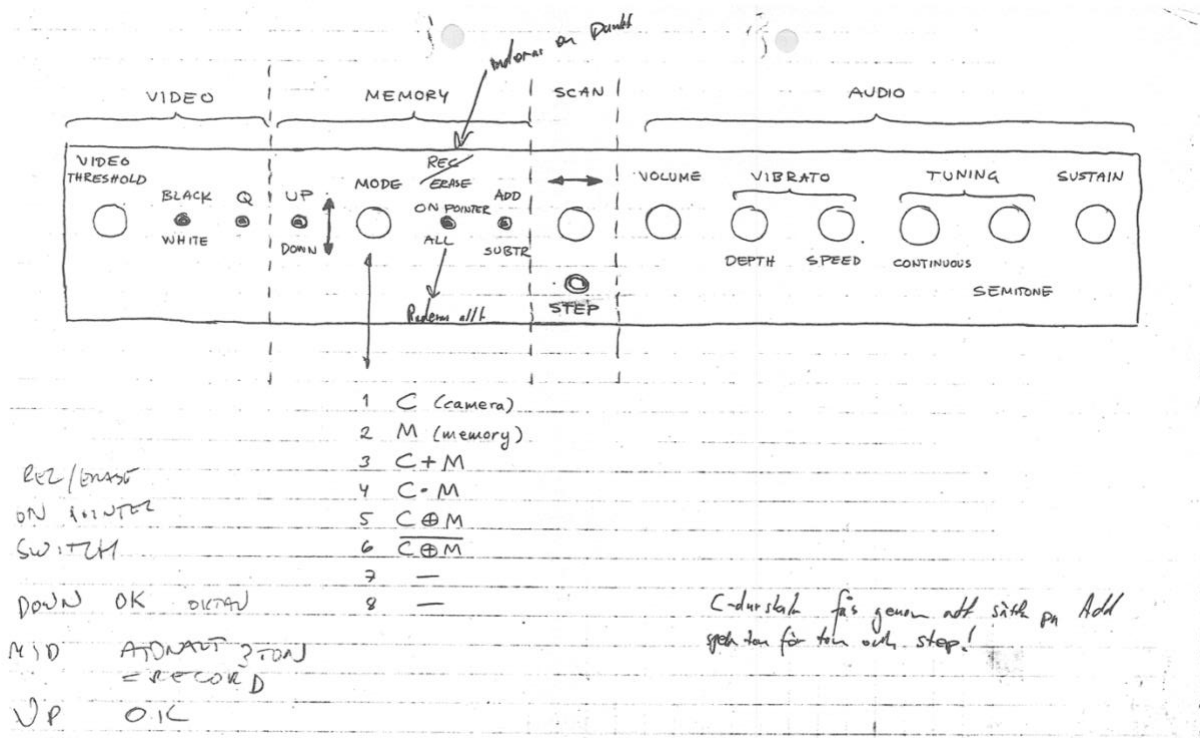 on Punkt
VIDEO MEMORY SCAN AUDIO
VIDEO THRESHOLD
BLACK
WHITE
Q
UP
DOWN
MODE
REC/
ERASE
ON POINTER
ALL
Radera allt
ADD
SUBTR
STEP
VOLUME
VIBRATO
DEPTH SPEED
TUNING
CONTINUOUS
SEMITONE
SUSTAIN
1 C (camera)
2 M (memory)
3 C+M
4 C·M
5 C⊕M
6 C̅⊕̅M̅
7 —
8 —
REC/ERASE
ON POINTER
SWITCH
DOWN OK OKTAV
MID ATONALT ? TON
= RECORD
UP OK
C-durskala fås genom att sätta på Add
spela ton för ton och step!